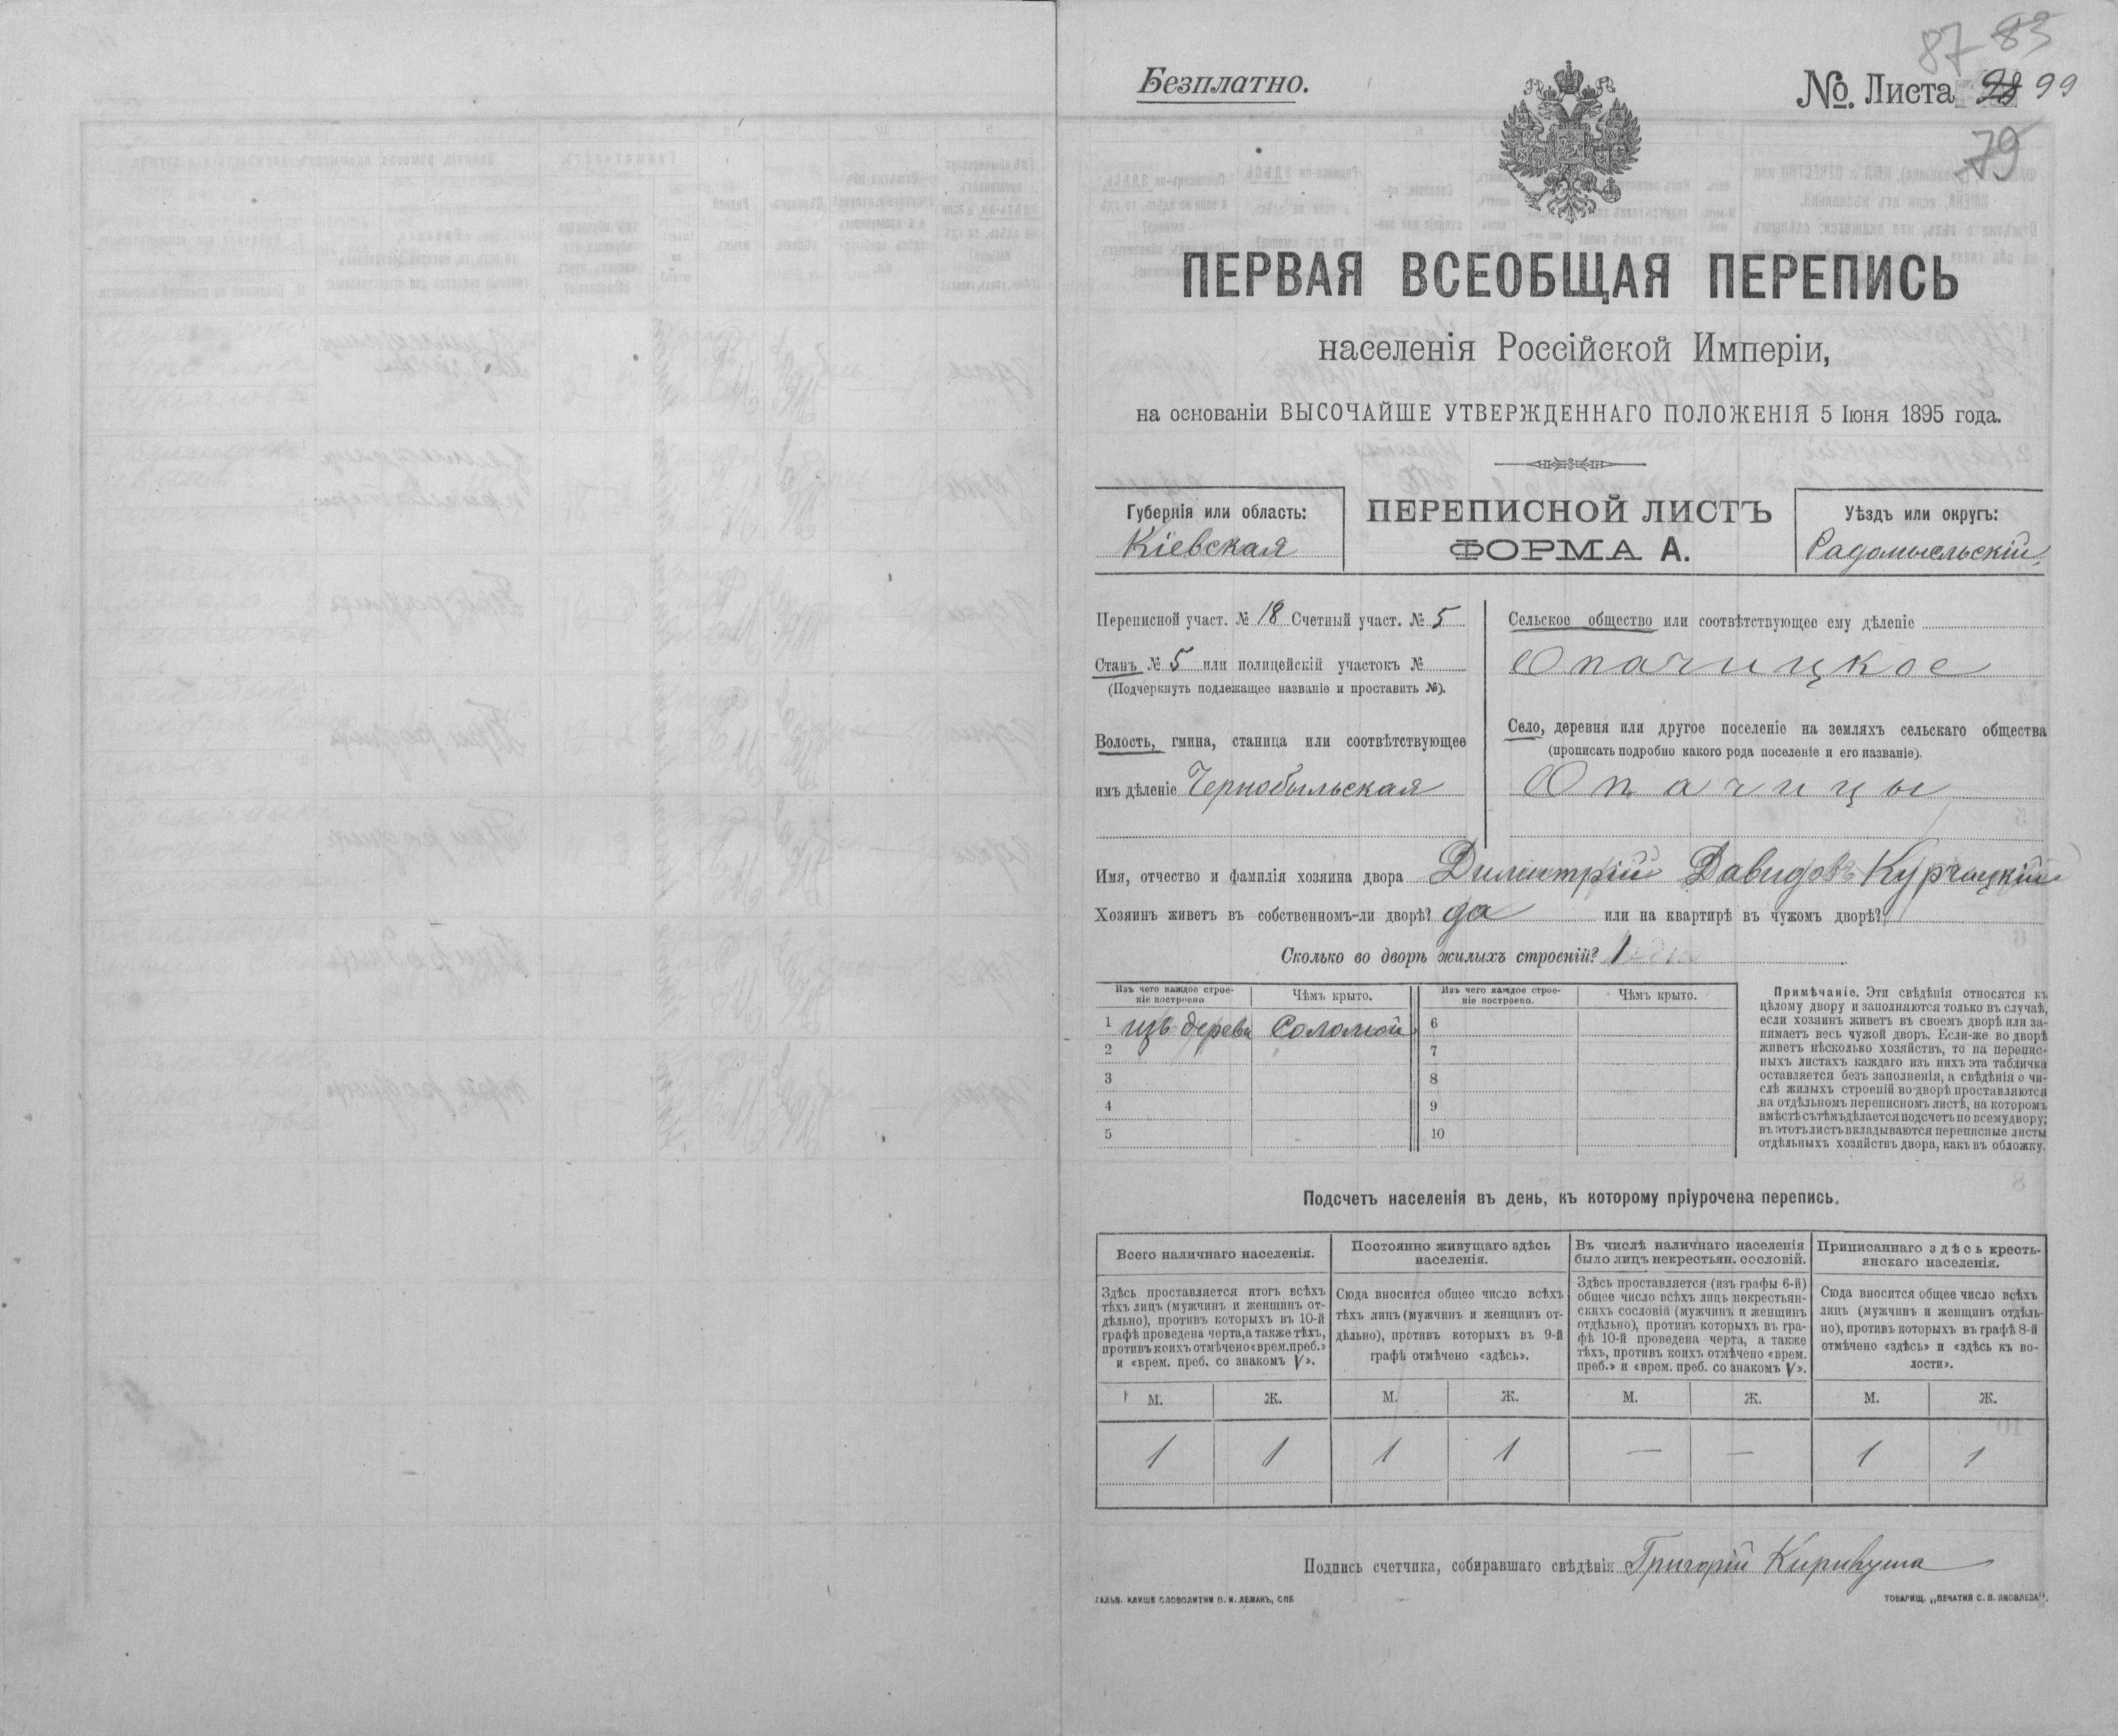 87 83
Безплатно.
№. Листа 98 99
79
ПЕРВАЯ ВСЕОБЩАЯ ПЕРЕПИСЬ
населенія Россійской Имперіи,
на основаніи ВЫСОЧАЙШЕ УТВЕРЖДЕННАГО ПОЛОЖЕНІЯ 5 Іюня 1895 года.
Губернія или область:
Кіевская
ПЕРЕПИСНОЙ ЛИСТЪ
ФОРМА А.
Уѣздъ или округъ:
Радомысльскій
Переписной участ. № 18 Счетный участ. № 5
Станъ № 5 или полицейскій участокъ №
(Подчеркнуть подлежащее названіе и проставить №).
Волость, гмина, станица или соотвѣтствующее
имъ дѣленіе Чернобыльская
Сельское общество или соотвѣтствующее ему дѣленіе
Опачицкое
Село, деревня или другое поселеніе на земляхъ сельскаго общества
(прописать подробно какого рода поселеніе и его названіе).
Опачицы
Имя, отчество и фамилія хозяина двора Димитрій Давидовъ Курчицкій
Хозяинъ живетъ въ собственномъ-ли дворѣ? да или на квартирѣ въ чужомъ дворѣ?
Сколько во дворѣ жилыхъ строеній? 1
Изъ чего каждое строе-
ніе построено
Чѣмъ крыто.
Изъ чего каждое строе-
ніе построено.
Чѣмъ крыто.
1 изъ дерева Соломой 6
2 7
3 8
4 9
5 10
Примѣчаніе. Эти свѣдѣнія относятся къ
цѣлому двору и заполняются только въ случаѣ,
если хозяинъ живетъ въ своемъ дворѣ или за-
нимаетъ весь чужой дворъ. Если-же во дворѣ
живетъ нѣсколько хозяйствъ, то на перепис-
ныхъ листахъ каждаго изъ нихъ эта табличка
оставляется безъ заполненія, а свѣдѣнія о чи-
слѣ жилыхъ строеній во дворѣ проставляются
на отдѣльномъ переписномъ листѣ, на которомъ
вмѣстѣ съ тѣмъ дѣлается подсчетъ по всему двору;
въ этотъ листъ вкладываются переписные листы
отдѣльныхъ хозяйствъ двора, какъ въ обложку.
Подсчетъ населенія въ день, къ которому пріурочена перепись.
Всего наличнаго населенія.
Здѣсь проставляется итогъ всѣхъ
тѣхъ лицъ (мужчинъ и женщинъ от-
дѣльно), противъ которыхъ въ 10-й
графѣ проведена черта, а также тѣхъ,
противъ коихъ отмѣчено «врем. преб.»
и «врем. преб. со знакомъ V».
Постоянно живущаго здѣсь
населенія.
Сюда вносится общее число всѣхъ
тѣхъ лицъ (мужчинъ и женщинъ от-
дѣльно), противъ которыхъ въ 9-й
графѣ отмѣчено «здѣсь».
Въ числѣ наличнаго населенія
было лицъ некрестьян. сословій.
Здѣсь проставляется (изъ графы 6-й)
общее число всѣхъ лицъ некрестьян-
скихъ сословій (мужчинъ и женщинъ
отдѣльно), противъ которыхъ въ гра-
фѣ 10-й проведена черта, а также
тѣхъ, противъ коихъ отмѣчено «врем.
преб.» и «врем. преб. со знакомъ V».
Приписаннаго здѣсь кресть-
янскаго населенія.
Сюда вносится общее число всѣхъ
лицъ (мужчинъ и женщинъ отдѣль-
но), противъ которыхъ въ графѣ 8-й
отмѣчено «здѣсь» и «здѣсь къ во-
лости».
М. Ж. М. Ж. М. Ж. М. Ж.
1 1 1 1 — — 1 1
Подпись счетчика, собиравшаго свѣдѣнія Григорій
ГАЛЬВ. КЛИШЕ СЛОВОЛИТНИ О. И. ЛЕМАНЪ, СПБ
ТОВАРИЩ. „ПЕЧАТНЯ С. П. ЯКОВЛЕВА“.